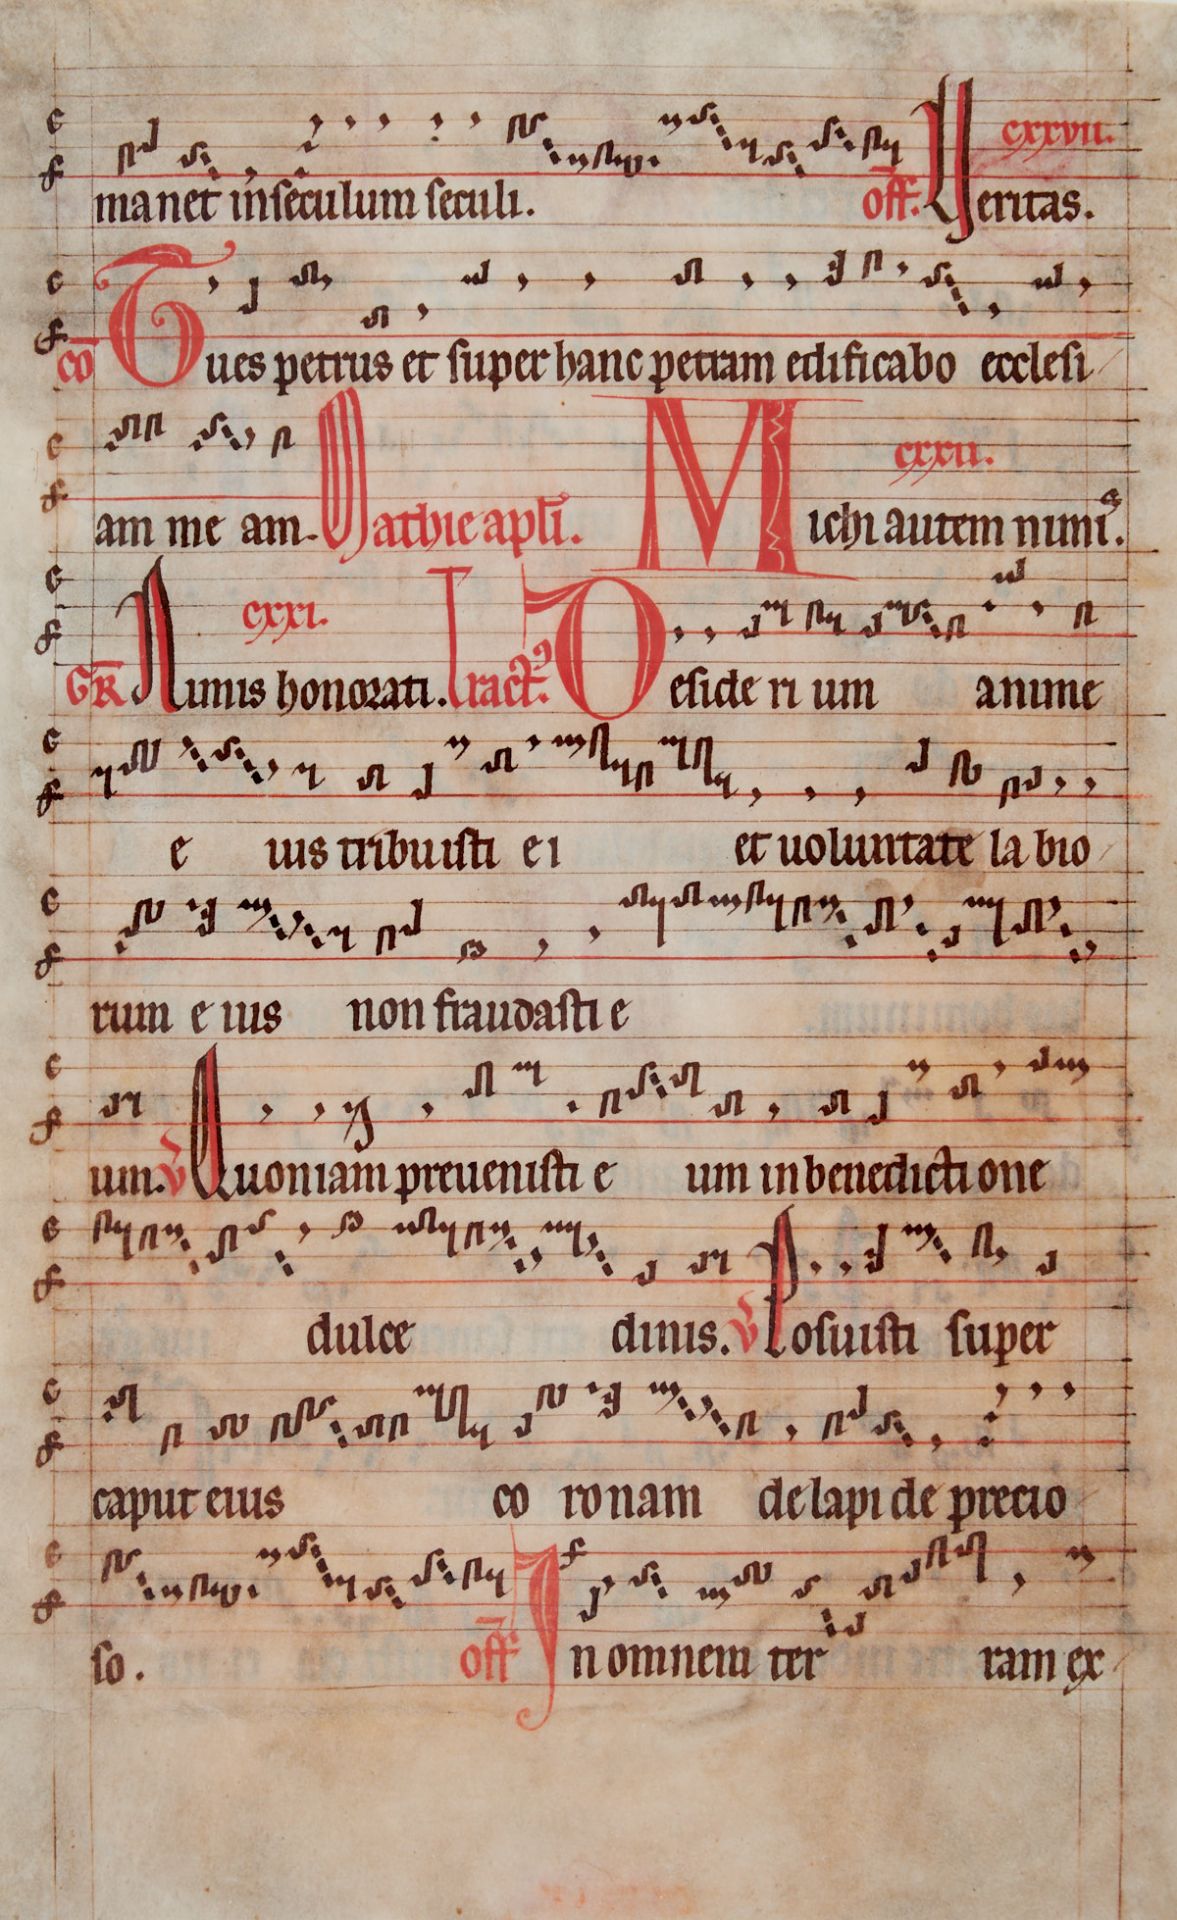 manet in seculum seculi. off. Veritas. cxxvii.
co Tu es petrus et super hanc petram edificabo ecclesi
am me am. Mathie apli. Michi autem nimi9. cxxii.
GR Nimis honorati. cxxi. Tract9. Desiderium anime
e ius tribuisti ei et uoluntate labio
rum e ius non fraudasti e
um. V Quoniam preuenisti e um in benedictione
dulce dinis. V Posuisti super
caput eius co ronam de lapide precio
so. off In omnem ter ram ex